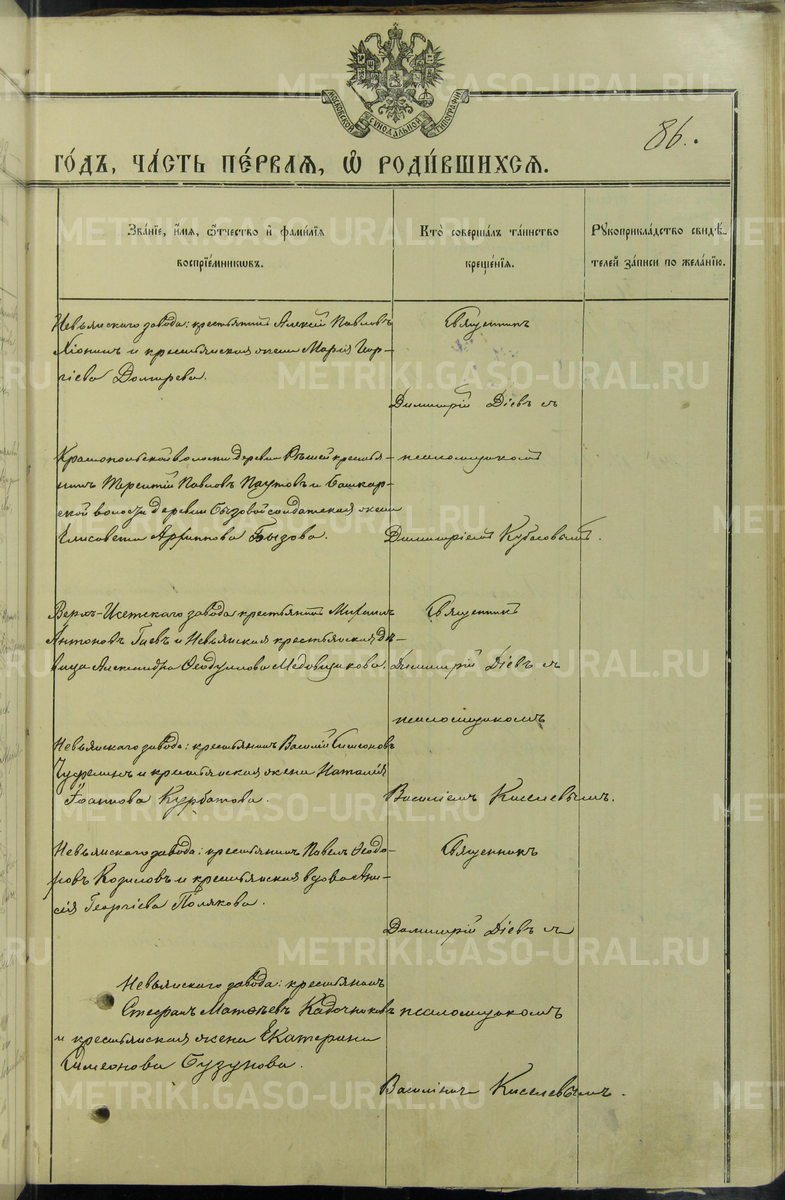 МОСКОВСКОЙ СѴНОДАЛЬНОЙ ТИПОГРАФІИ
86.
ГО́ДЪ, ЧА́СТЬ ПЕ́РВАЯ, Ѽ РОДИ́ВШИХСЯ.
Зва́нїе, и́мя, ѻ҆́тчество и҆ фами́лїя
воспрїе́мникѡвъ.
Кто̀ соверша́лъ та́инство
креще́нїя.
Рꙋкоприкла́дство свидѣ́-
телей за́писи по жела́нїю.
Невьянскаго завода: крестьянинъ Алексій Павловъ
Хіонинъ и крестьянская жена Марія Геор-
гіева Домарева.
Священникъ
Димитрій Діевъ съ
Краснопольской волости деревни крестья-
нинъ Терентій Павловъ Паутовъ и Башкар-
ской волости деревни Бызовой солдатская жена
Елисавета Архиппова Бызова.
псаломщикомъ
Димитріемъ Кубасовымъ.
Верхъ-Исетскаго завода крестьянинъ Михаилъ
Антоновъ Гаевъ и Невьянская крестьянская дѣ-
вица Александра Ѳеодулова Медовщикова.
Священникъ
Димитрій Діевъ съ
псаломщикомъ
Невьянскаго завода: крестьянинъ Василій Симеоновъ
и крестьянская жена Наталія
Іоаннова Курбатова.
Василіемъ Киселевымъ.
Невьянскаго завода: крестьянинъ Павелъ Ѳеодо-
ровъ Козиловъ и крестьянская вдова Ани-
сія Георгіева Полякова.
Священникъ
Димитрій Діевъ съ
Невьянскаго завода: крестьянинъ
Стефанъ Матѳѣевъ Кадочниковъ
и крестьянская жена Екатерина
Симеонова Бузунова.
псаломщикомъ
Василіемъ Киселевымъ.
METRIKI.GASO-URAL.RU